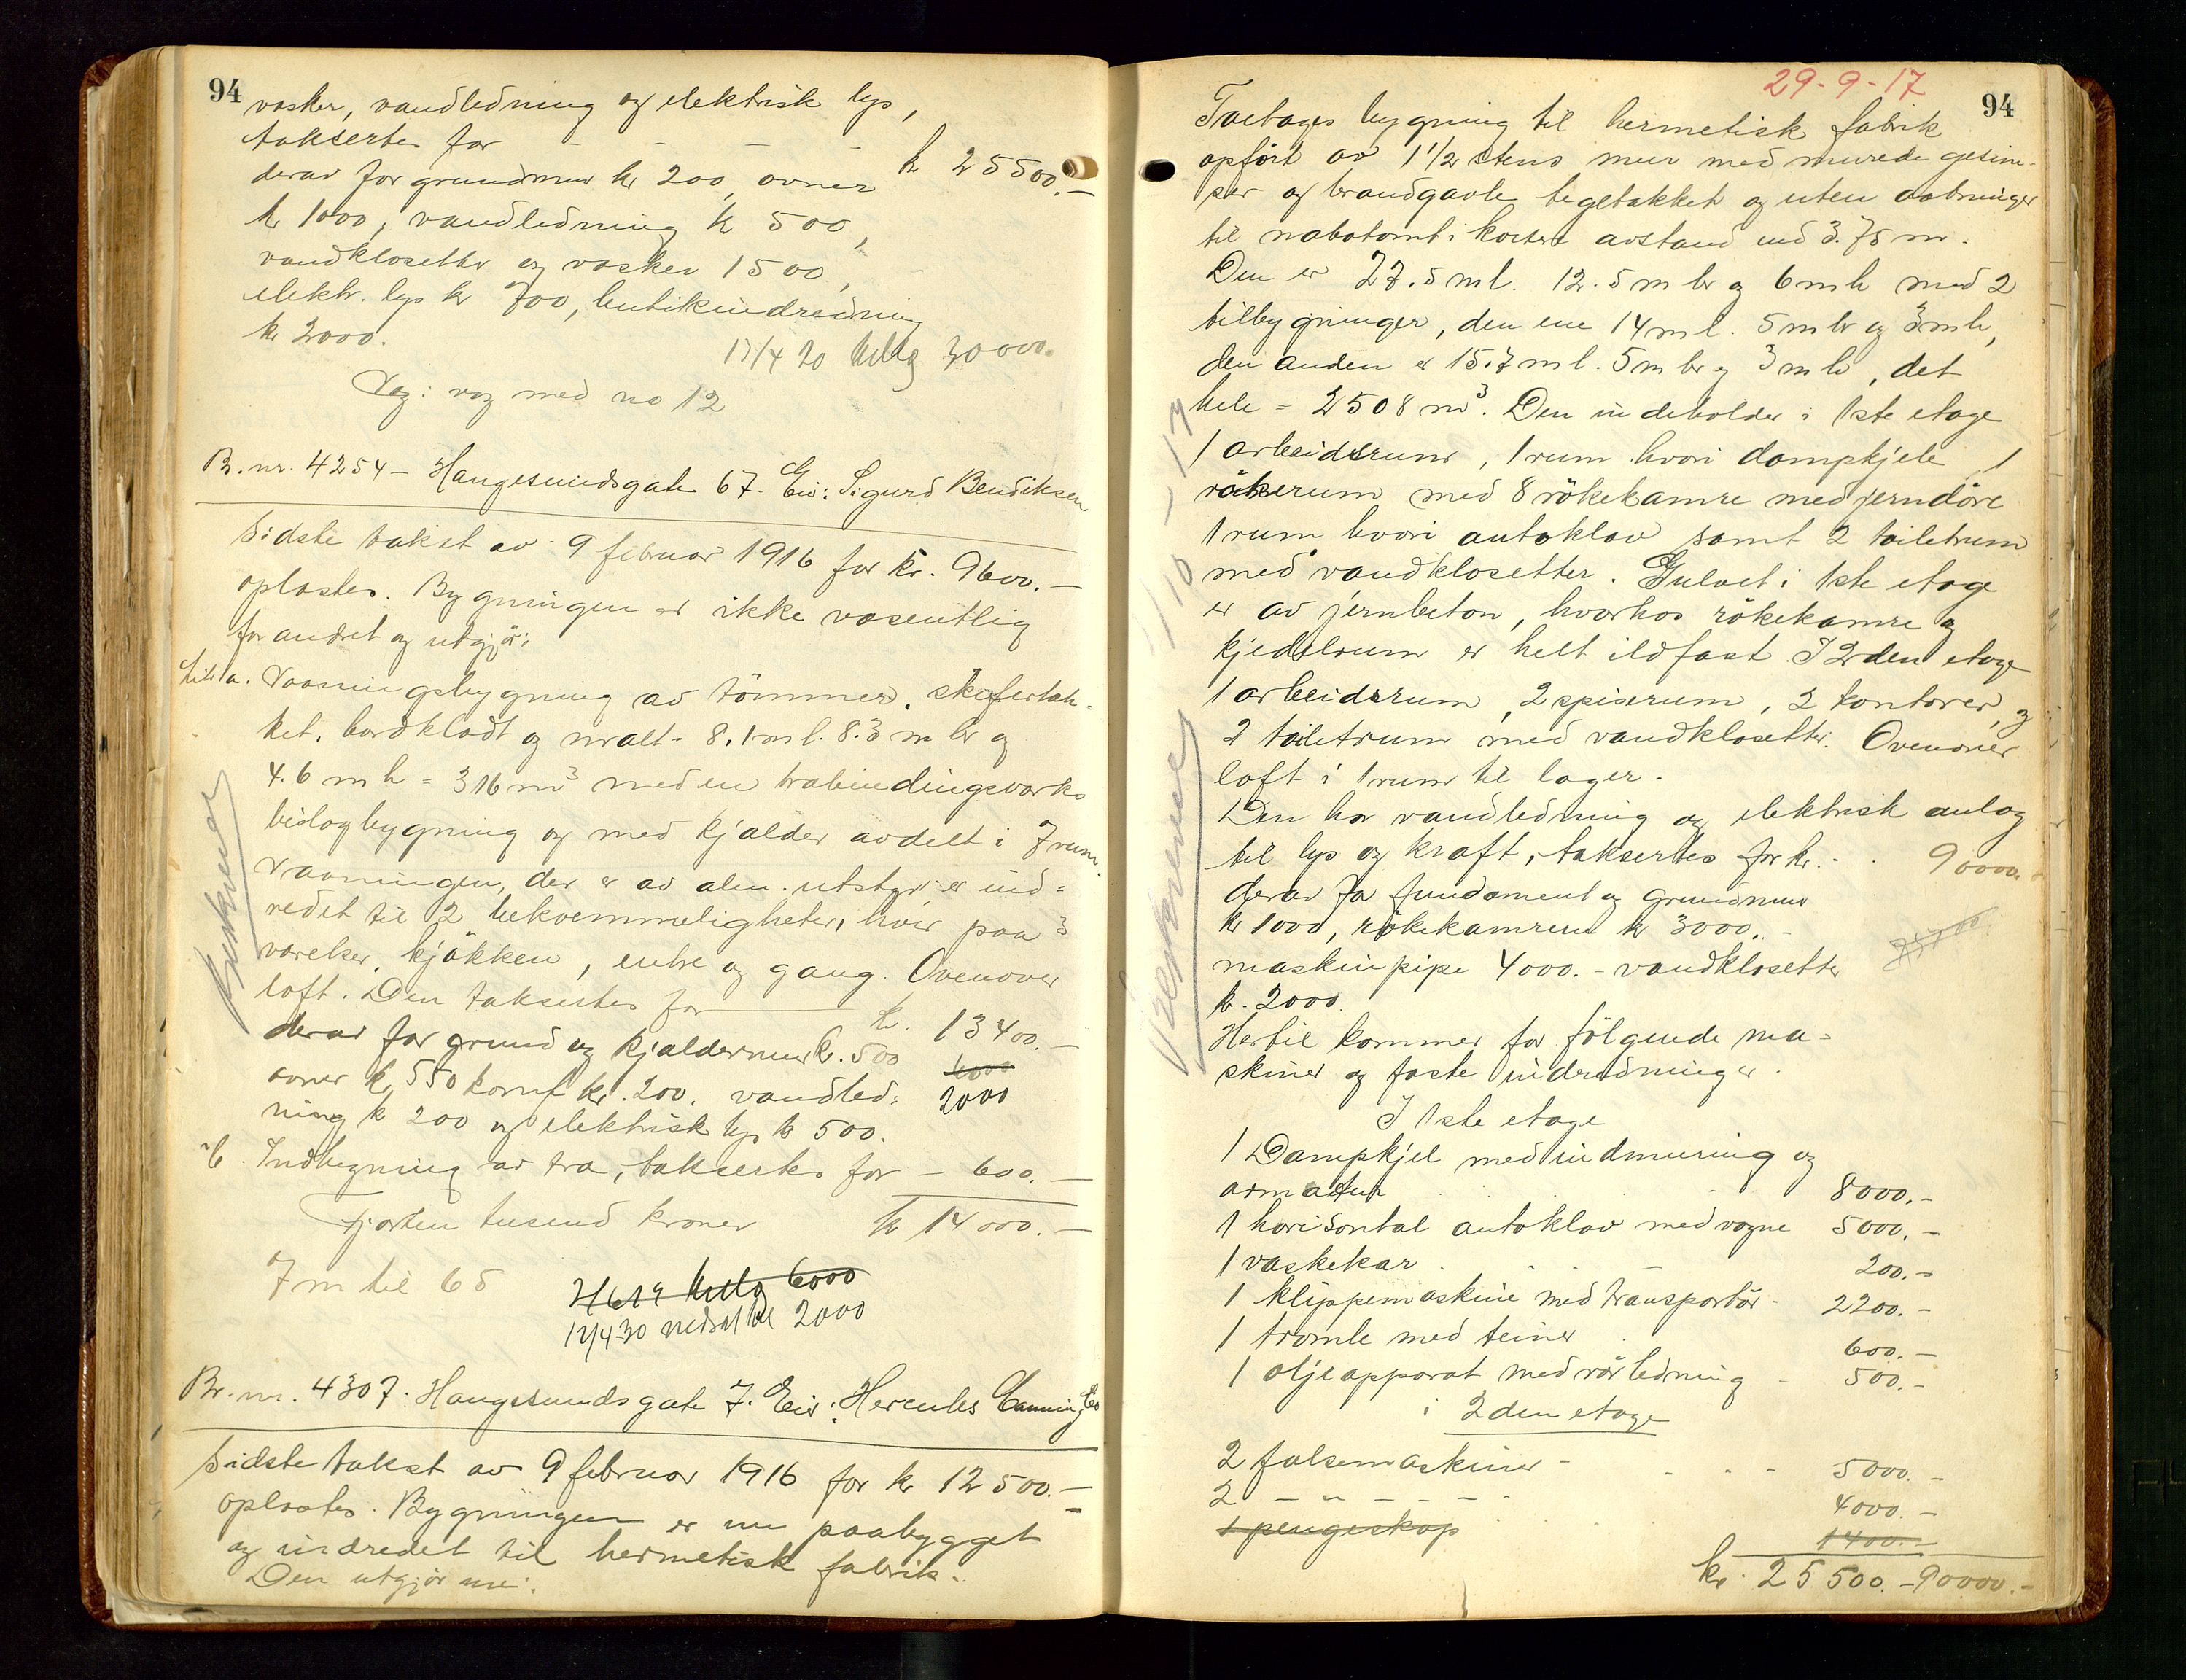 94
vasker, vandledning og elektrisk lys,
takserte for - - - kr 25500.-
derav for grundmur kr 200, ovner
kr 1000, vandledning kr 500,
vandklosetter og vasker 1500,
elektr. lys kr 700, butikindredning
kr 2000.
17/4 20 tillæg 30000.
Væg: væg med no 12
Br. nr. 4254 - Haugesundsgate 67. Eier: Sigurd Bendiksen
Sidste takst av 9 februar 1916 for kr. 9600.-
oplæstes. Bygningen er ikke væsentlig
forandret og utgjør:
Litr a. Vaaningsbygning av tömmer, skifertæk-
ket, bordklædt og malt - 8.1 m l. 8.3 m br og
4.6 m h = 316 m³ med en træbindingsværks
bislagbygning og med kjælder avdelt i 7 rum.
Vaaningen, der er av alm. utstyr er ind=
redet til 2 bekvemmeligheter, hver paa 3
værelser, kjökken, entre og gang. Ovenover
loft. Den taksertes for kr. 13400.-
derav for grund og kjældermur kr. 500
6000
ovner kr 550 komf kr. 200. vandled=
2000
ning kr 200 og elektrisk lys kr 500.
" b. Indbygning av træ, taksertes for - 600.-
Fjorten tusend kroner kr 14000.-
7 m til 65
2/6 19 tillæg 6000
12/4-30 nedsat til 2000
Br. nr. 4307. Haugesundsgate 7. Eier: Hercules Canning Co
Sidste takst av 9 februar 1916 for kr 12500.-
oplæstes. Bygningen er nu paabygget
og indredet til hermetisk fabrik.
Den utgjør nu:
29-9-17
94
Toetages bygning til hermetisk fabrik
opført av 1 1/2 stens mur med murede gesim-
ser og brandgavle tegltækket og uten aabninger
til nabotomt i kortere avstand end 3.75 m.
Den er 27.5 m l. 12.5 m br og 6 m h med 2
tilbygninger, den ene 14 m l. 5 m br og 3 m h,
den anden er 15.7 m l. 5 m br og 3 m h, det
hele = 2508 m³. Den indeholder i 1ste etage
1 arbeidsrum, 1 rum hvori dampkjele, 1
rökerum med 8 rökekamre med jerndöre
1 rum hvori autoklav samt 2 toiletrum
med vandklosetter. Gulvet i 1ste etage
er av jernbeton, hvorhos rökekamre og
kjedelrum er helt ildfast. I 2den etage
1 arbeidsrum, 2 spiserum, 2 kontorer, og
2 toiletrum med vandklosetter. Ovenover
loft i 1 rum til lager.
Den har vandledning og elektrisk anlæg
til lys og kraft, taksertes for kr. - 90000.-
derav for fundament og grundmur
kr 1000, rökekamrene kr 3000.-
maskinpipe 4000.- vandklosetter
kr. 2000.
Hertil kommer for fölgende ma=
skiner og faste indredninger.
I 1ste etage
1 Dampkjel med indmuring og
armatur 8000.-
1 horisontal autoklav med vogne 5000.-
1 vaskekar 200.-
1 klippemaskine med transportör - 2200.-
1 tromle med teiner 600.-
1 oljeapparat med rörledning - 500.-
i 2den etage
2 falsemaskiner - 5000.-
2 - " - - - - 4000.-
1 pengeskap 1400.-
kr. 25500.- 90000.-